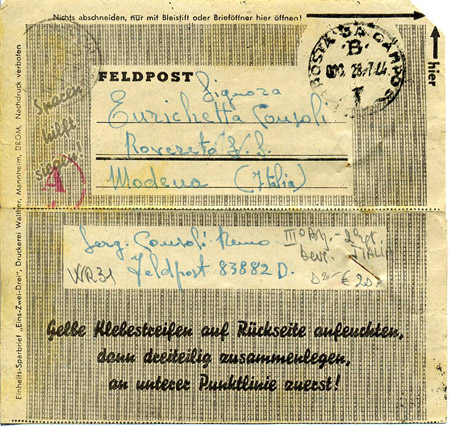 Nichts abschneiden, nur mit Bleistift oder Brieföffner hier öffnen!
hier
Einheits-Sparbrief „Eins-Zwei-Drei", Druckerei Walther, Mannheim, DRGM. Nachdruck verboten
POSTA DA CAMPO
"B"
28.7.44
Sparen
hilft
siegen!
A
FELDPOST
Signora
Enrichetta Consoli
Rovereto S. S.
Modena (Italia)
Serg. Consoli Remo
Feldpost 83882 D.
WR31
Gelbe Klebestreifen auf Rückseite anfeuchten,
dann dreiteilig zusammenlegen,
an unterer Punktlinie zuerst!